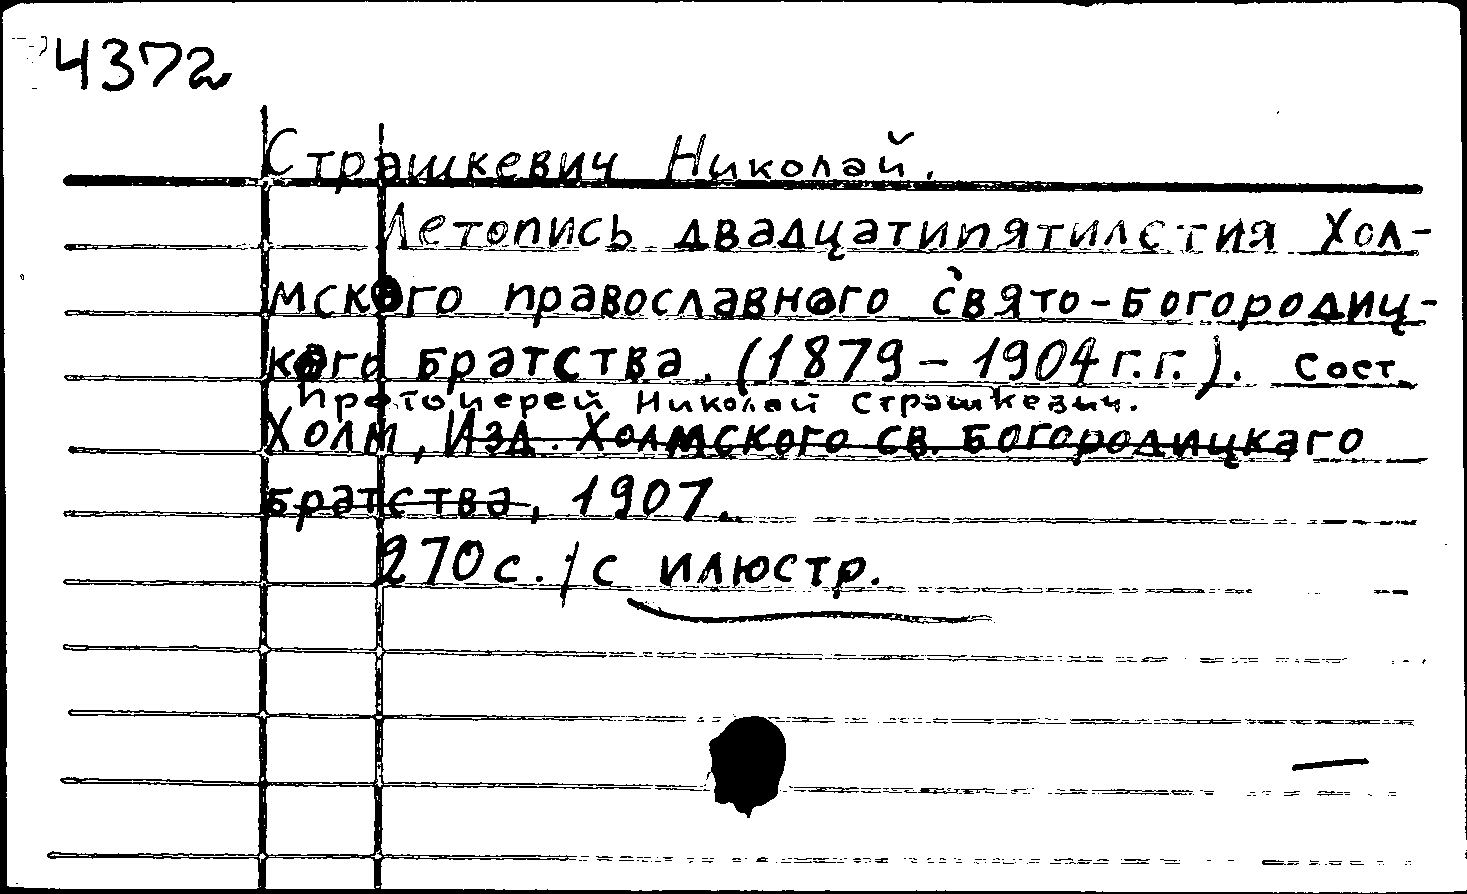 4372
Страшкевич Николай.
Летопись двадцатипятилетия Хол-
мского православного свято-Богородиц-
кого братства. (1879-1904 г.г.). Сост
Протоиерей Николай Страшкевич.
Холм, Изд. Холмского св. Богородицкаго
братства, 1907.
270 с. / с илюстр.